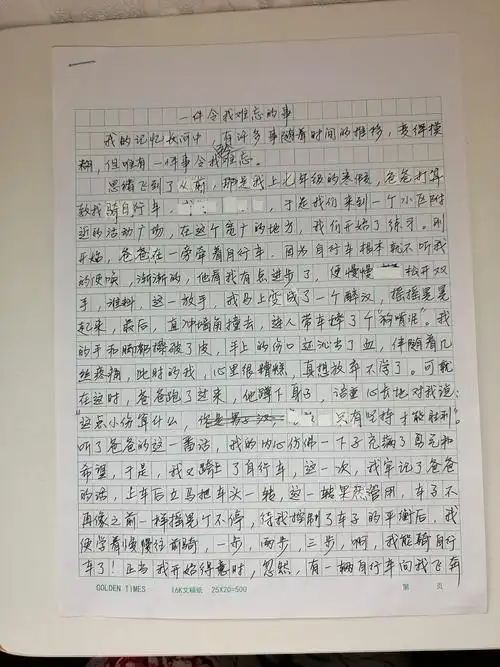 一件令我难忘的事
我的记忆长河中，有许多事随着时间的推移，变得模
糊，但唯有一件事令我难忘。
思绪飞到了从前，那是我上七年级的寒假，爸爸打算
教我骑自行车，于是我们来到一个小区附
近的活动广场，在这个宽广的地方，我们开始了练习。刚
开始，爸爸在一旁牵着自行车，因为自行车根本就不听我
的使唤，渐渐的，他看我有点进步了，便慢慢松开双
手，谁料，这一放手，我马上变成了一个醉汉，摇摇晃晃
起来，最后，直冲墙角撞去，连人带车摔了个“狗啃泥”。我
的手和脚都擦破了皮，手上的伤口还沁出了血，伴随着几
丝疼痛，此时的我，心里很糟糕，真想放弃不学了。可就
在这时，爸爸跑了过来，他蹲下身子，语重心长地对我说：
“这点小伤算什么，只有坚持才能胜利。”
听了爸爸的这一番话，我的内心仿佛一下子充满了勇气和
希望，于是，我又骑上了自行车，这一次，我牢记了爸爸
的话，上车后立马把车头一转，这一转果然管用，车子不
再像之前一样摇晃个不停，待我控制了车子的平衡后，我
便学着慢慢往前骑，一步，两步，三步，啊，我能骑自行
车了！正当我开始得意时，忽然，有一辆自行车向我飞奔
GOLDEN TIMES 16K文稿纸 25X20=500 第 页